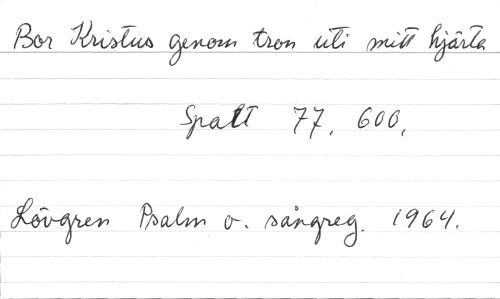 Bor Kristus genom tron uti mitt hjärta
Spalt 77, 600,
Lövgren Psalm o. sångreg. 1964.